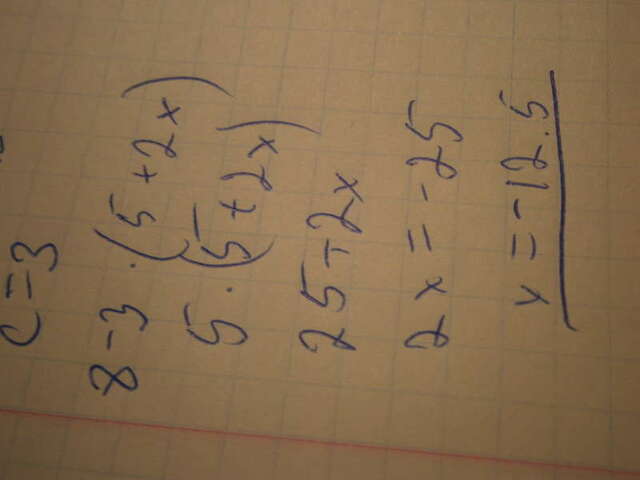 c=3
8-3·(5+2x)
5·(5+2x)
25+2x
2x=-25
x=-12.5